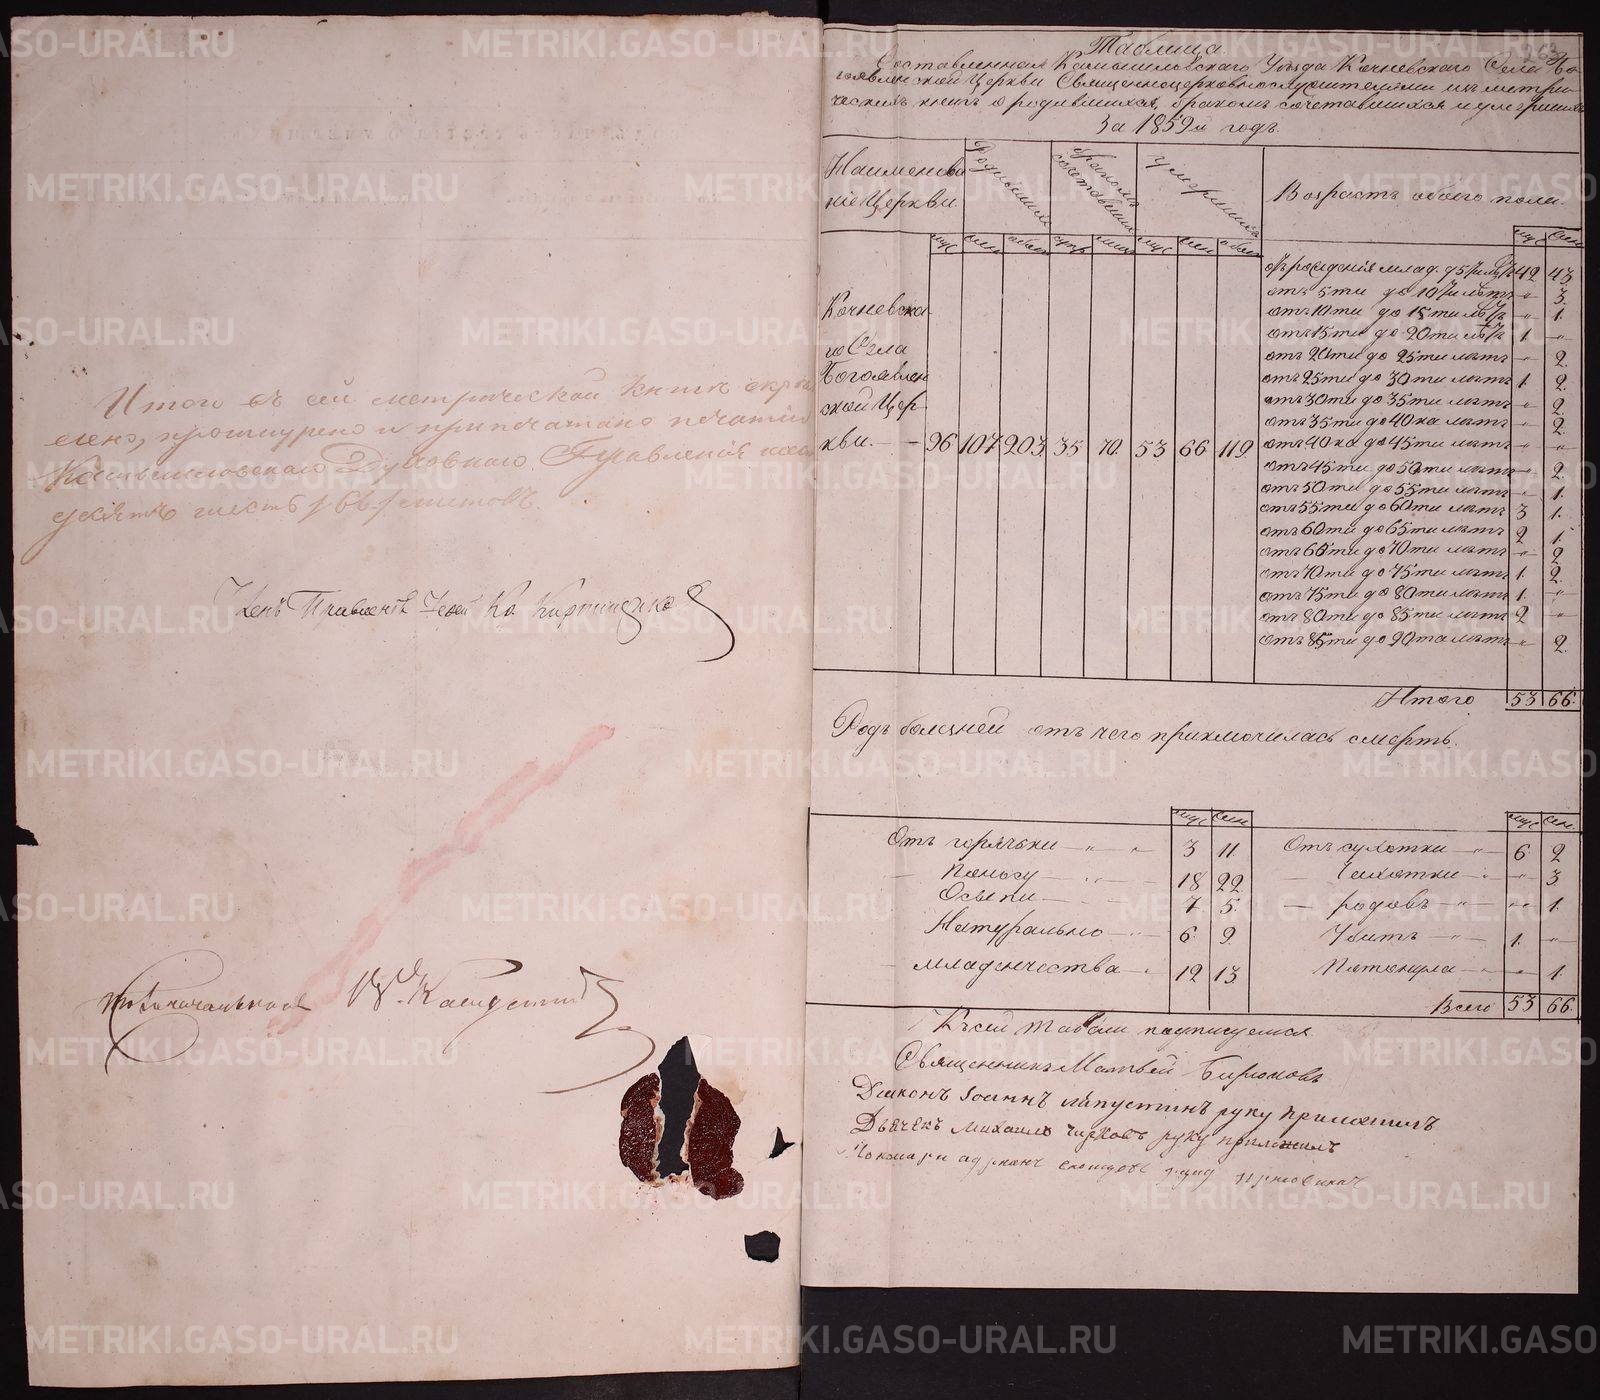 Итого въ сей метрической книгѣ скрѣ
плено, прошнурено и припечатано печатью
Камышловскаго Духовнаго Правленія
шесть /66/ листовъ
Членъ Правленія
263
Таблица
Составленная Камышловскаго Уѣзда Кочневскаго Села Бо
гоявленской Церкви Священноцерковнослужителями изъ метри
ческихъ книгъ о родившихся, бракомъ сочетавшихся и умершихъ
За 1859й годъ.
Наименова
ніе Церкви.
Родившихся
бракомъ сочетавшихся
Умершихъ
Возрастъ обоего пола.
муж жен обоего муж жен обоего муж жен
Кочневска
го Села
Богоявлен
ской Цер
кви. — 96 107 203 35 70. 53 66 119
отъ рожденія млад. до 5ти лѣтъ 42 43
отъ 5ти до 10ти лѣтъ — " 3.
отъ 10ти до 15ти лѣтъ " 1.
отъ 15ти до 20ти лѣтъ 1 "
отъ 20ти до 25ти лѣтъ " 2
отъ 25ти до 30ти лѣтъ 1. 2.
отъ 30ти до 35ти лѣтъ " 2
отъ 35ти до 40ка лѣтъ " 2.
отъ 40ка до 45ти лѣтъ " "
отъ 45ти до 50ти лѣтъ " 2
отъ 50ти до 55ти лѣтъ " 1.
отъ 55ти до 60ти лѣтъ 3 1.
отъ 60ти до 65ти лѣтъ 2 1
отъ 65ти до 70ти лѣтъ " 2
отъ 70ти до 75ти лѣтъ 1. 2.
отъ 75ти до 80ти лѣтъ 1. "
отъ 80ти до 85ти лѣтъ 2 "
отъ 85ти до 90та лѣтъ " 2.
Итого 53 66.
Родъ болѣзней отъ чего приключилась смерть.
муж жен муж жен.
Отъ горячки — " " 3 11. Отъ сухотки — " 6. 2
— Поносу — " — 18 22 — Чахотки — " " 3
Осьпы — 7 5. — родовъ — " " 1.
Натурально — " 6. 9. Убитъ — " 1. "
— младенчества — " 12 13. Потонула — " " 1.
Всего 53 66.
Къ сей табели подписуемся
Священникъ Матвей Бирюковъ
Диаконъ Іоаннъ Лапустинъ руку приложилъ
Дьячекъ Михаило Чирковъ руку приложилъ
Пономарь
METRIKI.GASO-URAL.RU